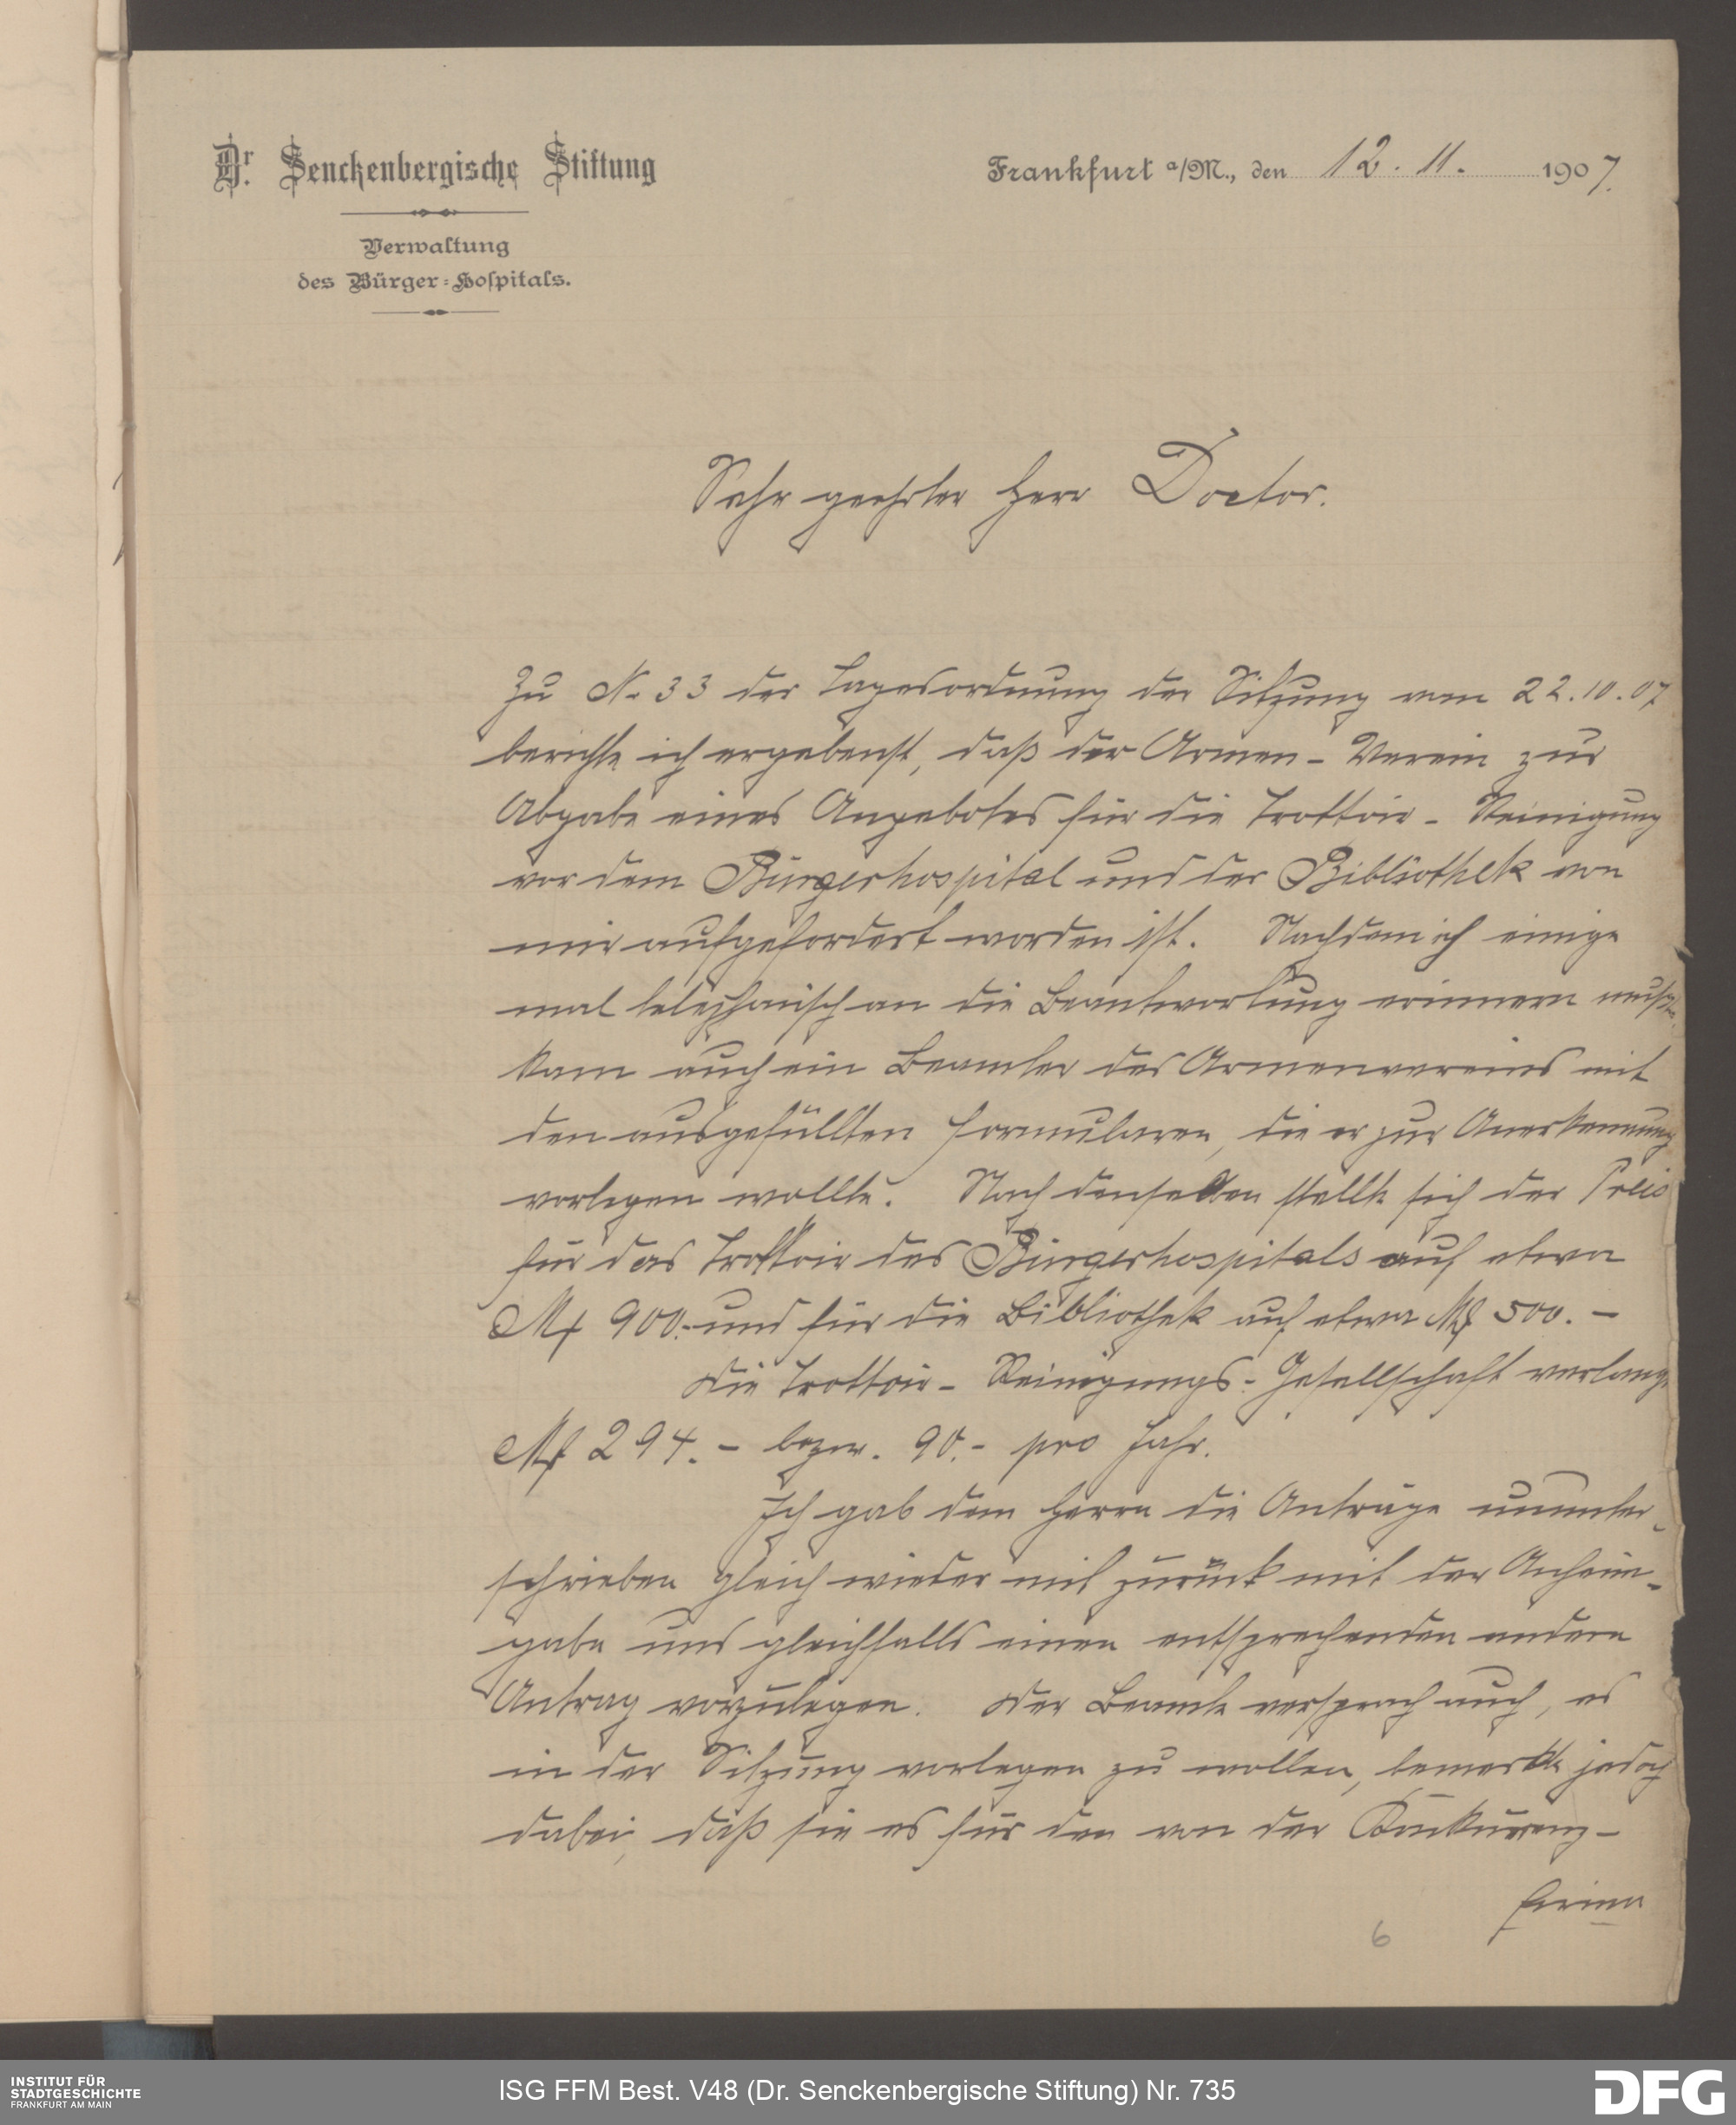 Dr. Senckenbergische Stiftung
Verwaltung
des Bürger-Hospitals.
Frankfurt a/M., den 12. 11. 1907.
Sehr geehrter Herr Doctor.
Zu N. 33 der Tagesordnung der Sitzung vom 22.10.07
berichte ich ergebenst, daß der Armen-Verein zur
Abgabe eines Angebotes für die Trottoir-Reinigung
vor dem Bürgerhospital und der Bibliothek von
mir aufgefordert worden ist. Nachdem ich einige
mal telephonisch an die Beantwortung erinnern mußte,
kam auch ein Beamter des Armenvereins mit
den ausgefüllten Formularen, die er zur Anerkennung
vorlegen wollte. Nach denselben stellte sich der Preis
für das Trottoir des Bürgerhospitals auf etwa
Mk 900.- und für die Bibliothek auf etwa Mk 500.-
Die Trottoir-Reinigungs-Gesellschaft verlangt
Mk 294.- bezw. 90.- pro Jahr.
Ich gab dem Herrn die Anträge ununter-
schrieben gleich wieder mit zurück mit der Anheim-
gabe uns gleichfalls einen entsprechenden andern
Antrag vorzulegen. Der Beamte versprach auch, es
in der Sitzung vorlegen zu wollen, bemerkte jedoch
dabei, daß sie es für den von der Konkurrenz-
firma
6
INSTITUT FÜR
STADTGESCHICHTE
FRANKFURT AM MAIN
ISG FFM Best. V48 (Dr. Senckenbergische Stiftung) Nr. 735
DFG